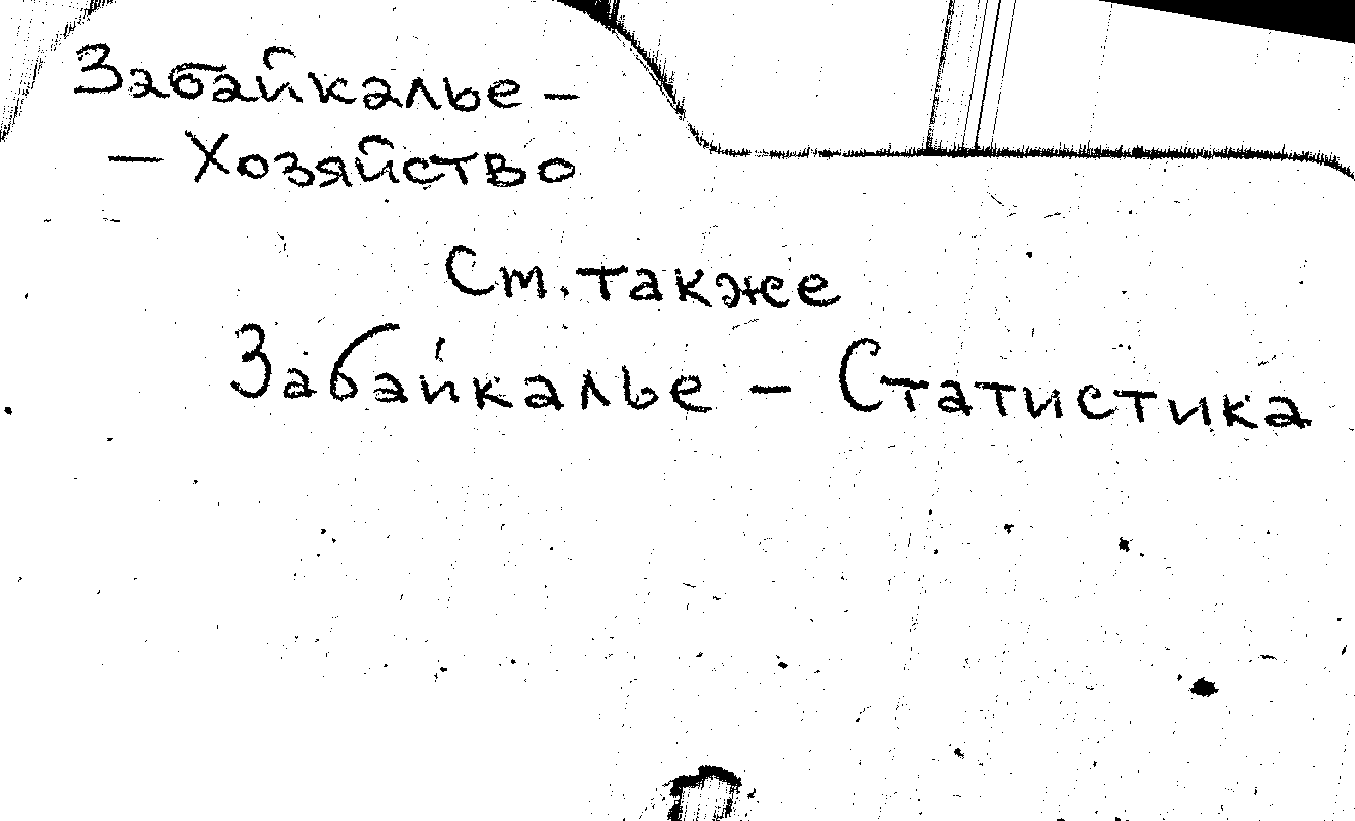 Забайкалье –
– Хозяйство
Ст. также
Забайкалье – Статистика